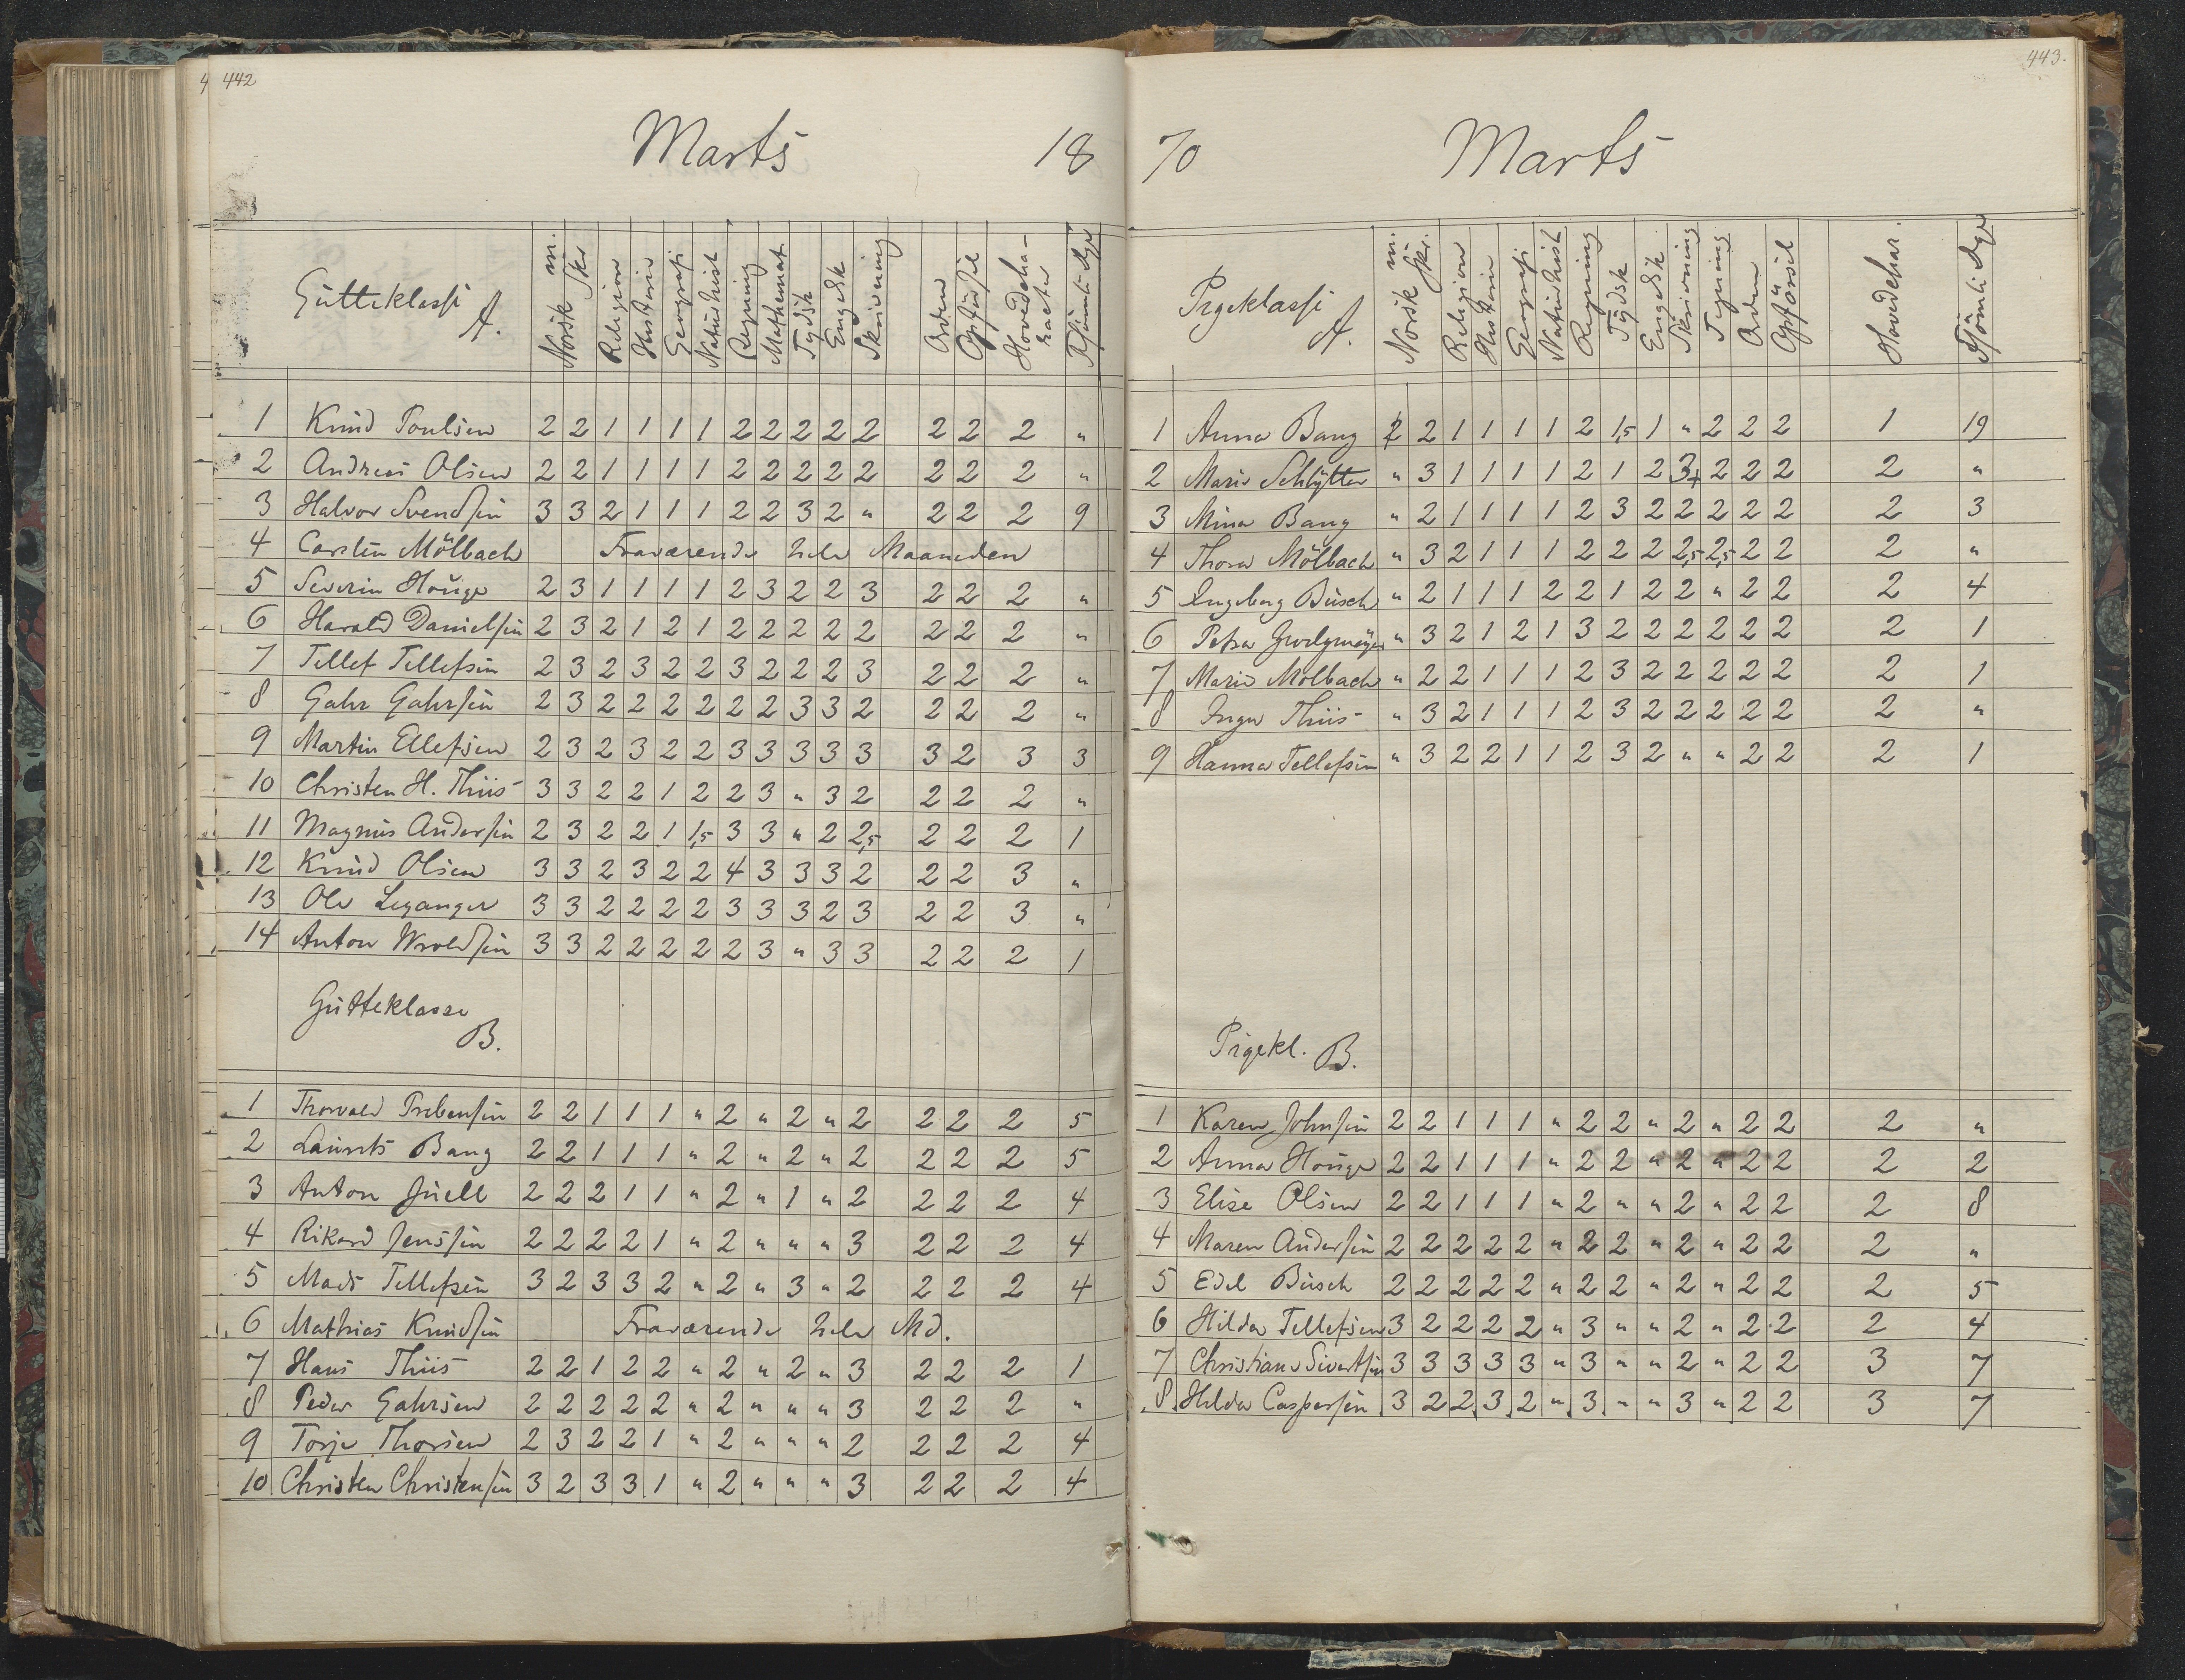 4 442
Marts 18
Gutteklasse A. Norsk m. Skr Religion Historie Geografi Naturhist Regning Mathemat. Tydsk Engelsk Skrivning Orden Opförsel Hovedcharacter Forsömte Dge
1 Knud Poulsen 2 2 1 1 1 1 2 2 2 2 2 2 2 2 "
2 Andreas Olsen 2 2 1 1 1 1 2 2 2 2 2 2 2 2 "
3 Halvor Svendsen 3 3 2 1 1 1 2 2 3 2 " 2 2 2 9
4 Carsten Mölbach Fraværende hele Maaneden
5 Severin Houge 2 3 1 1 1 1 2 3 2 2 3 2 2 2 "
6 Harald Danielsen 2 3 2 1 2 1 2 2 2 2 2 2 2 2 "
7 Tellef Tellefsen 2 3 2 3 2 2 3 2 2 2 3 2 2 2 "
8 Gahr Gahrsen 2 3 2 2 2 2 2 2 3 3 2 2 2 2 "
9 Martin Ellefsen 2 3 2 3 2 2 3 3 3 3 3 3 2 3 3
10 Christen H. Thiis 3 3 2 2 1 2 2 3 " 3 2 2 2 2 "
11 Magnus Andersen 2 3 2 2 1 1,5 3 3 " 2 2,5 2 2 2 1
12 Knud Olsen 3 3 2 3 2 2 4 3 3 3 2 2 2 3 "
13 Ole Leganger 3 3 2 2 2 2 3 3 3 2 3 2 2 3 "
14 Anton Wroldsen 3 3 2 2 2 2 2 3 " 3 3 2 2 2 1
Gutteklasse
B.
1 Thorvald Prebensen 2 2 1 1 1 " 2 " 2 " 2 2 2 2 5
2 Laurits Bang 2 2 1 1 1 " 2 " 2 " 2 2 2 2 5
3 Anton Juell 2 2 2 1 1 " 2 " 1 " 2 2 2 2 4
4 Rikard Jenssen 2 2 2 2 1 " 2 " " " 3 2 2 2 4
5 Mads Tellefsen 3 2 3 3 2 " 2 " 3 " 2 2 2 2 4
6 Mathias Knudsen Fraværende hele Md.
7 Hans Thiis 2 2 1 2 2 " 2 " 2 " 3 2 2 2 1
8 Peder Gahrsen 2 2 2 2 2 " 2 " " " 3 2 2 2 "
9 Torje Thorsen 2 3 2 2 1 " 2 " " " 2 2 2 2 4
10 Christen Christensen 3 2 3 3 1 " 2 " " " 3 2 2 2 4
443.
70 Marts
Pigeklasse A. Norsk m. Skr. Religion Historie Geografi Naturhist Regning Tydsk Engelsk Skrivning Tegning Orden Opförsel Hovedchar. Fsömte Dge
1 Anna Bang 2 2 1 1 1 1 2 1,5 1 " 2 2 2 1 19
2 Marie Schlytter " 3 1 1 1 1 2 1 2 3+ 2 2 2 2 "
3 Mina Bang " 2 1 1 1 1 2 3 2 2 2 2 2 2 3
4 Thora Mölbach " 3 2 1 1 1 2 2 2 2,5 2,5 2 2 2 "
5 Ingeborg Busch " 2 1 1 1 2 2 1 2 2 " 2 2 2 4
6 Petra " 3 2 1 2 1 3 2 2 2 2 2 2 2 1
7 Marie Mölbach " 2 2 1 1 1 2 3 2 2 2 2 2 2 1
8 Inger Thiis " 3 2 1 1 1 2 3 2 2 2 2 2 2 "
9 Hanna Tellefsen " 3 2 2 1 1 2 3 2 " " 2 2 2 1
Pigekl. B.
1 Karen Johnsen 2 2 1 1 1 " 2 2 " 2 " 2 2 2 "
2 Anna Houge 2 2 1 1 1 " 2 2 " 2 " 2 2 2 2
3 Elise Olsen 2 2 1 1 1 " 2 " " 2 " 2 2 2 8
4 Maren Andersen 2 2 2 2 2 " 2 2 " 2 " 2 2 2 "
5 Edel Busch 2 2 2 2 2 " 2 2 " 2 " 2 2 2 5
6 Hilda Tellefsen 3 2 2 2 2 " 3 " " 2 " 2 2 2 4
7 Christiane Sivertsen 3 3 3 3 3 " 3 " " 2 " 2 2 3 7
8 Hilda Caspersen 3 2 2 3 2 " 3 " " 3 " 2 2 3 7